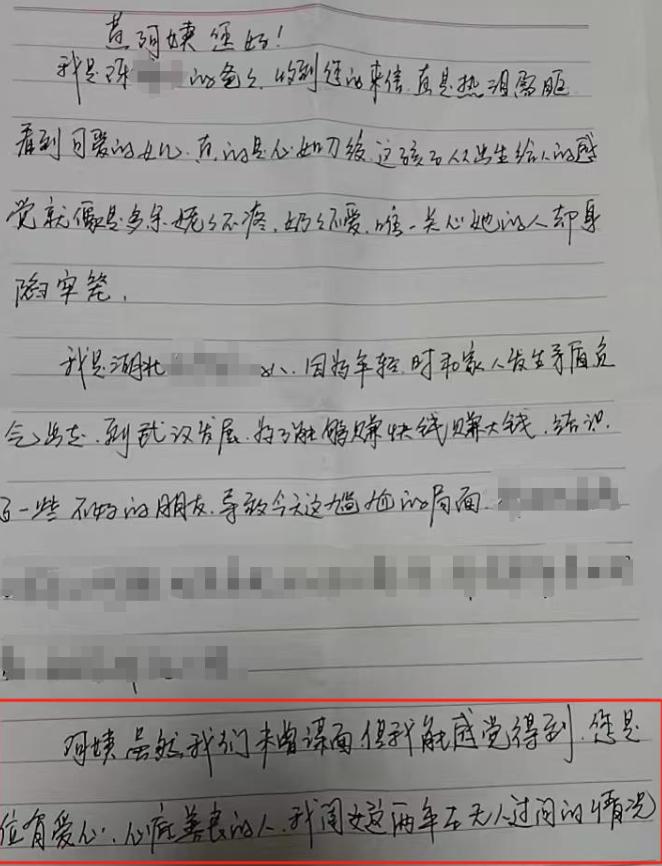 黄阿姨您好！
我是陈的爸爸，收到您的来信真是热泪盈眶
看到可爱的女儿，真的是心如刀绞，这孩子从出生给人的感
觉就像是多余，姥姥不疼，奶奶不爱，唯一关心她的人却身
陷牢笼，
我是湖北人，因为年轻时和家人发生矛盾负
气出走，到武汉发展，为了能够赚快钱赚大钱，结识
了一些不好的朋友，导致今天这尴尬的局面，
阿姨虽然我们未曾谋面，但我能感觉得到，您是
位有爱心，心底善良的人，我闺女这两年在无人过问的情况